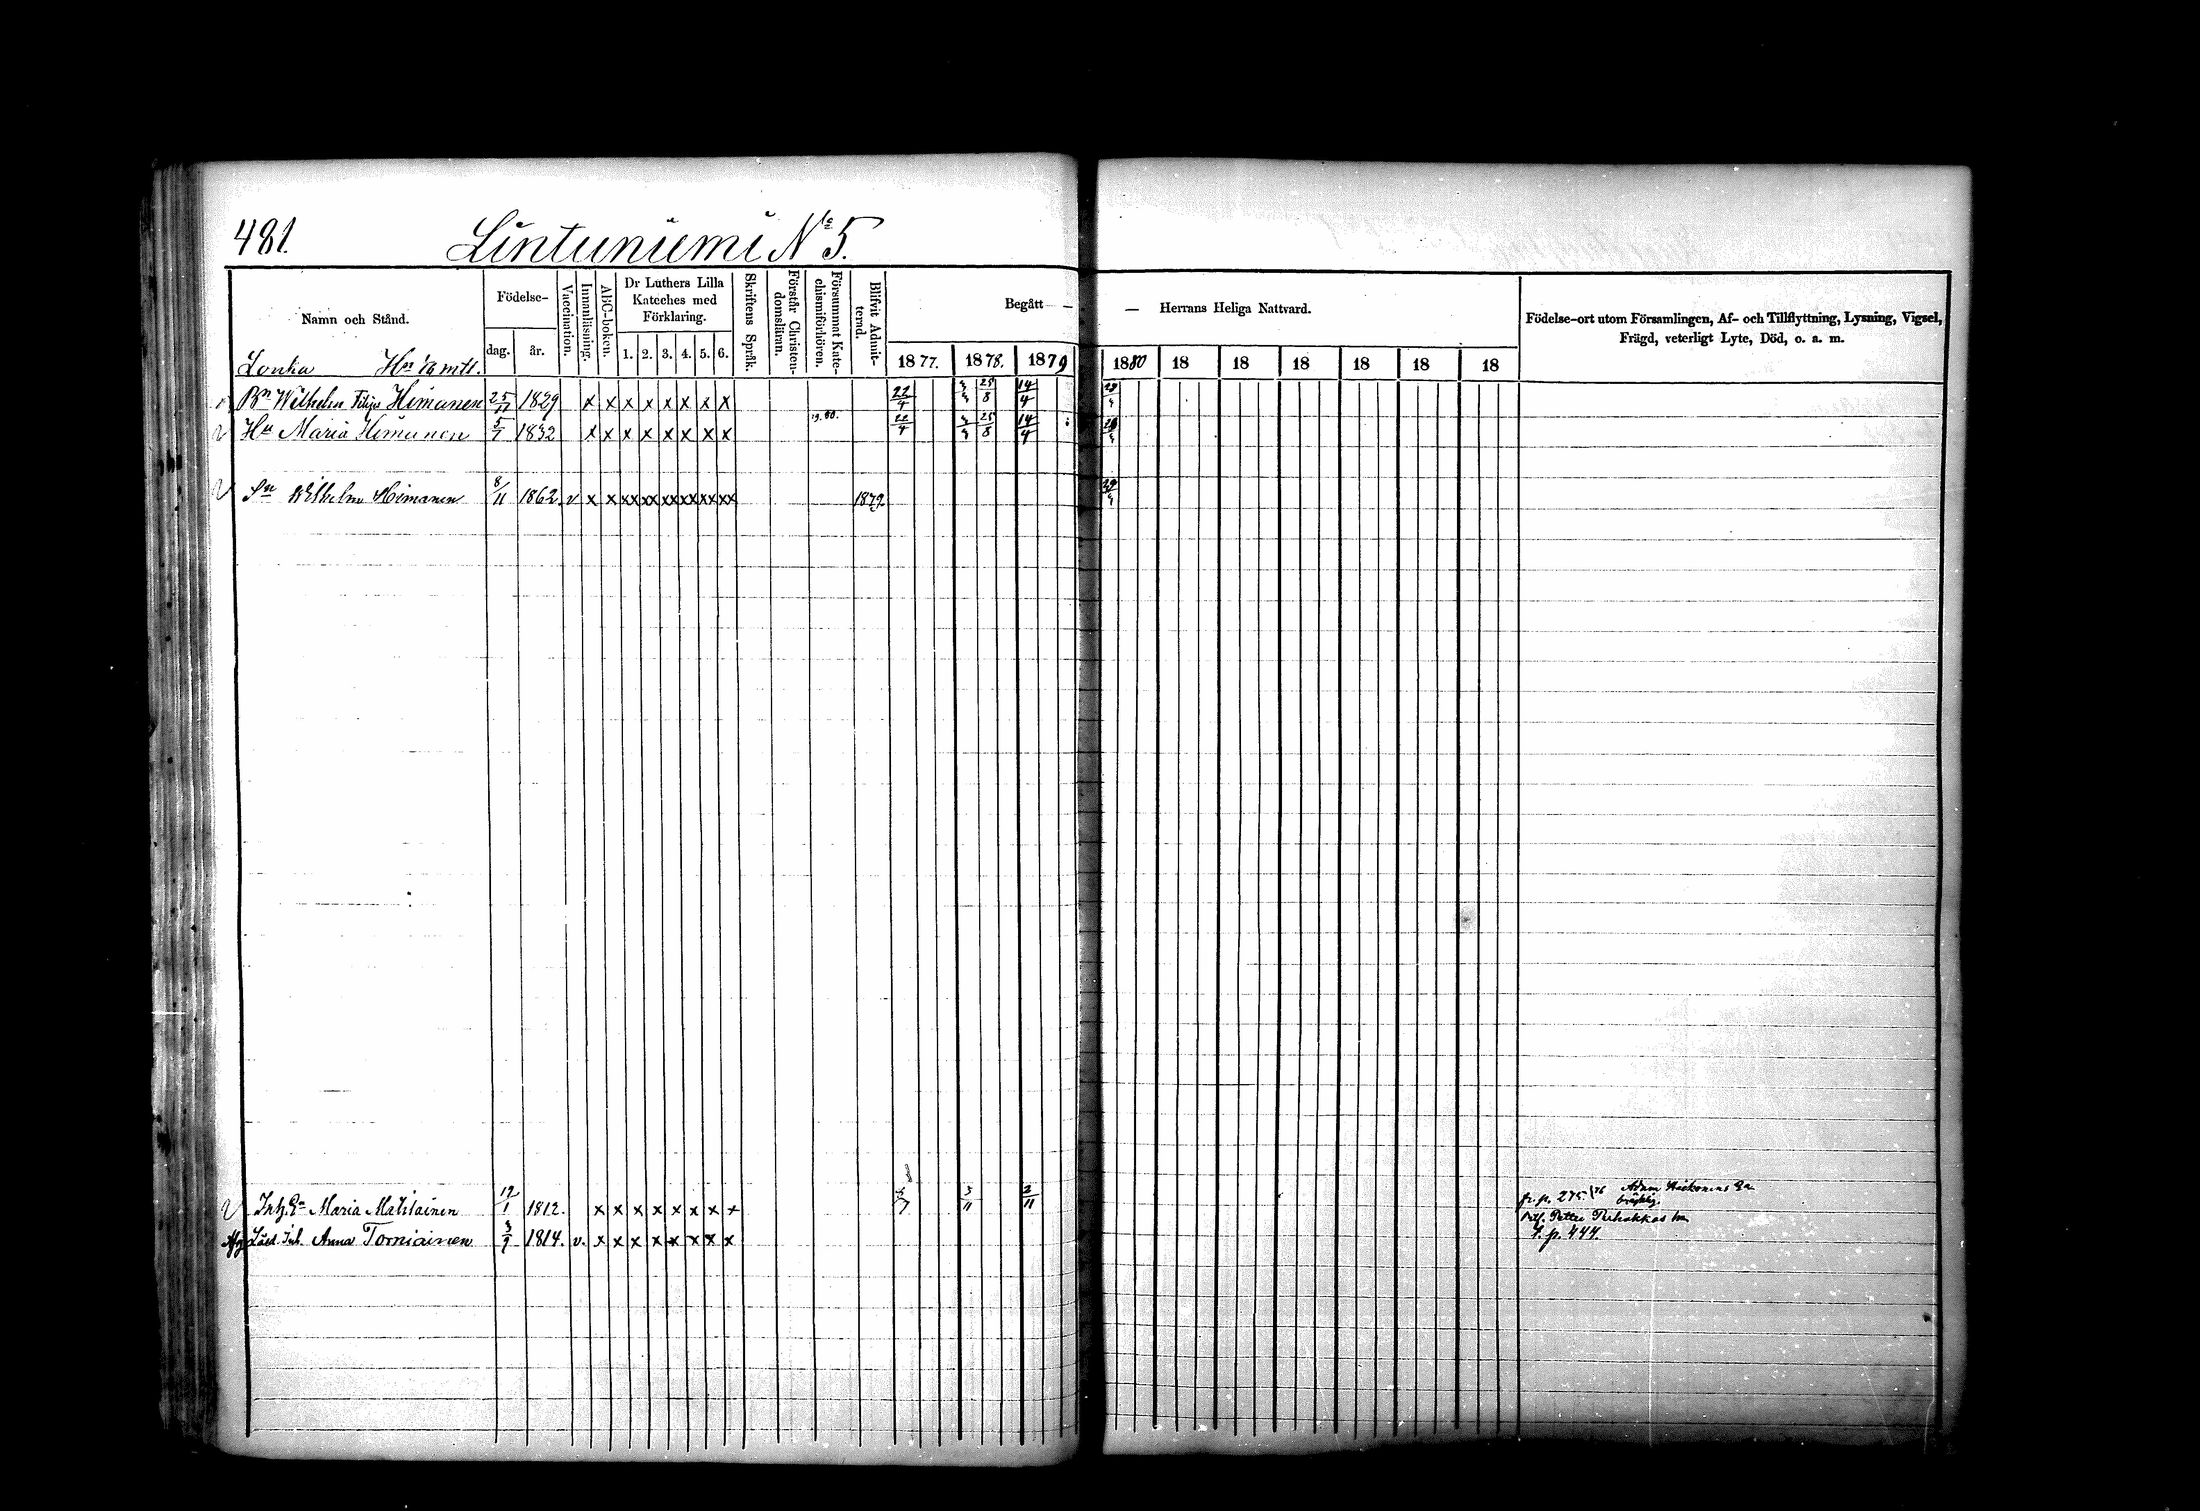 481.
Lintuniemi No 5.
Namn och Stånd.
Födelse-
dag.
år.
Vaccination.
Innanläsning.
ABC-boken.
Dr Luthers Lilla
Kateches med
Förklaring.
1. 2. 3. 4. 5. 6.
Skriftens Språk.
Förstår Christen-
domsläran.
Försummat Kate-
chismiförhören.
Blifvit Admit-
terad.
Begått —
— Herrans Heliga Nattvard.
1877. 1878. 1879 1880 18 18 18 18 18 18
Födelse-ort utom Församlingen, Af- och Tillflyttning, Lysning, Vigsel,
Frägd, veterligt Lyte, Död, o. a. m.
Hn 1/6 mtl.
Bn Wilhelm Filipp Himanen 25/11 1829 x x x x x x x x 22/4 25/8 14/4
Hu Maria Himanen 5/7 1832 x x x x x x x x 22/4 25/8 14/4
Sn Wilhelm Himanen 8/11 1862. v x x xx xx xx xx xx xx 1879.
Inh. En Maria Matilainen 19/1 1812. x x x x x x x x 3/11 2/11 fr. p. 275/76 Adam
Anna Torniainen 3/9 1814. v. x x x x x x x x Petter
f. p. 444.